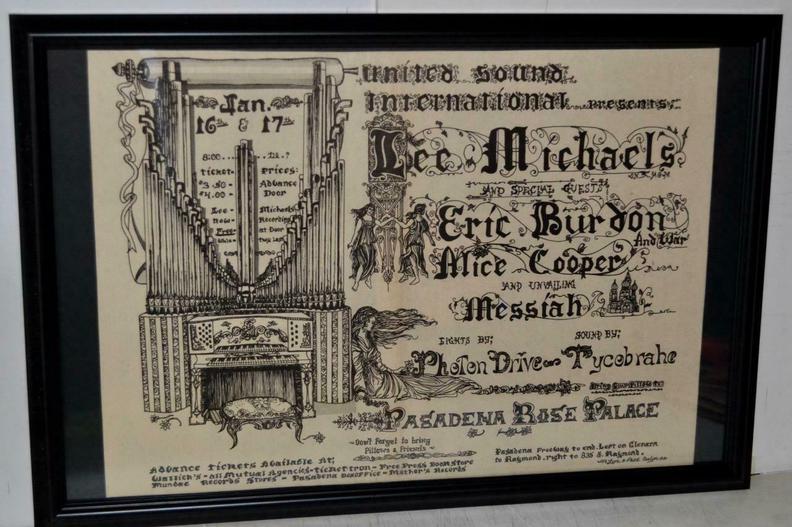 Jan.
16th & 17th
8:00....12.?
ticket prices:
$3.50 - Advance
$4.00 - Door
Lee - Michaels
new - Recording
Free - at Door
United Sound
International presents:
Lee Michaels
AND SPECIAL GUESTS
Eric Burdon
And War
Alice Cooper
AND UNVAILING
Messiah
LIGHTS BY; SOUND BY;
Photon Drive Tycobrahe
PASADENA ROSE PALACE
Don't Forget to bring
Pillows & Friends
Advance Tickets Available At;
Wallich's - all Mutual Agencies - ticketron - Free Press Book Store
Mundae Records Stores - Pasadena boxoffice - Mother's Records
Pasadena Freeway to end. Left on Glenarm
to Raymond. right to 835 S. Raymond.